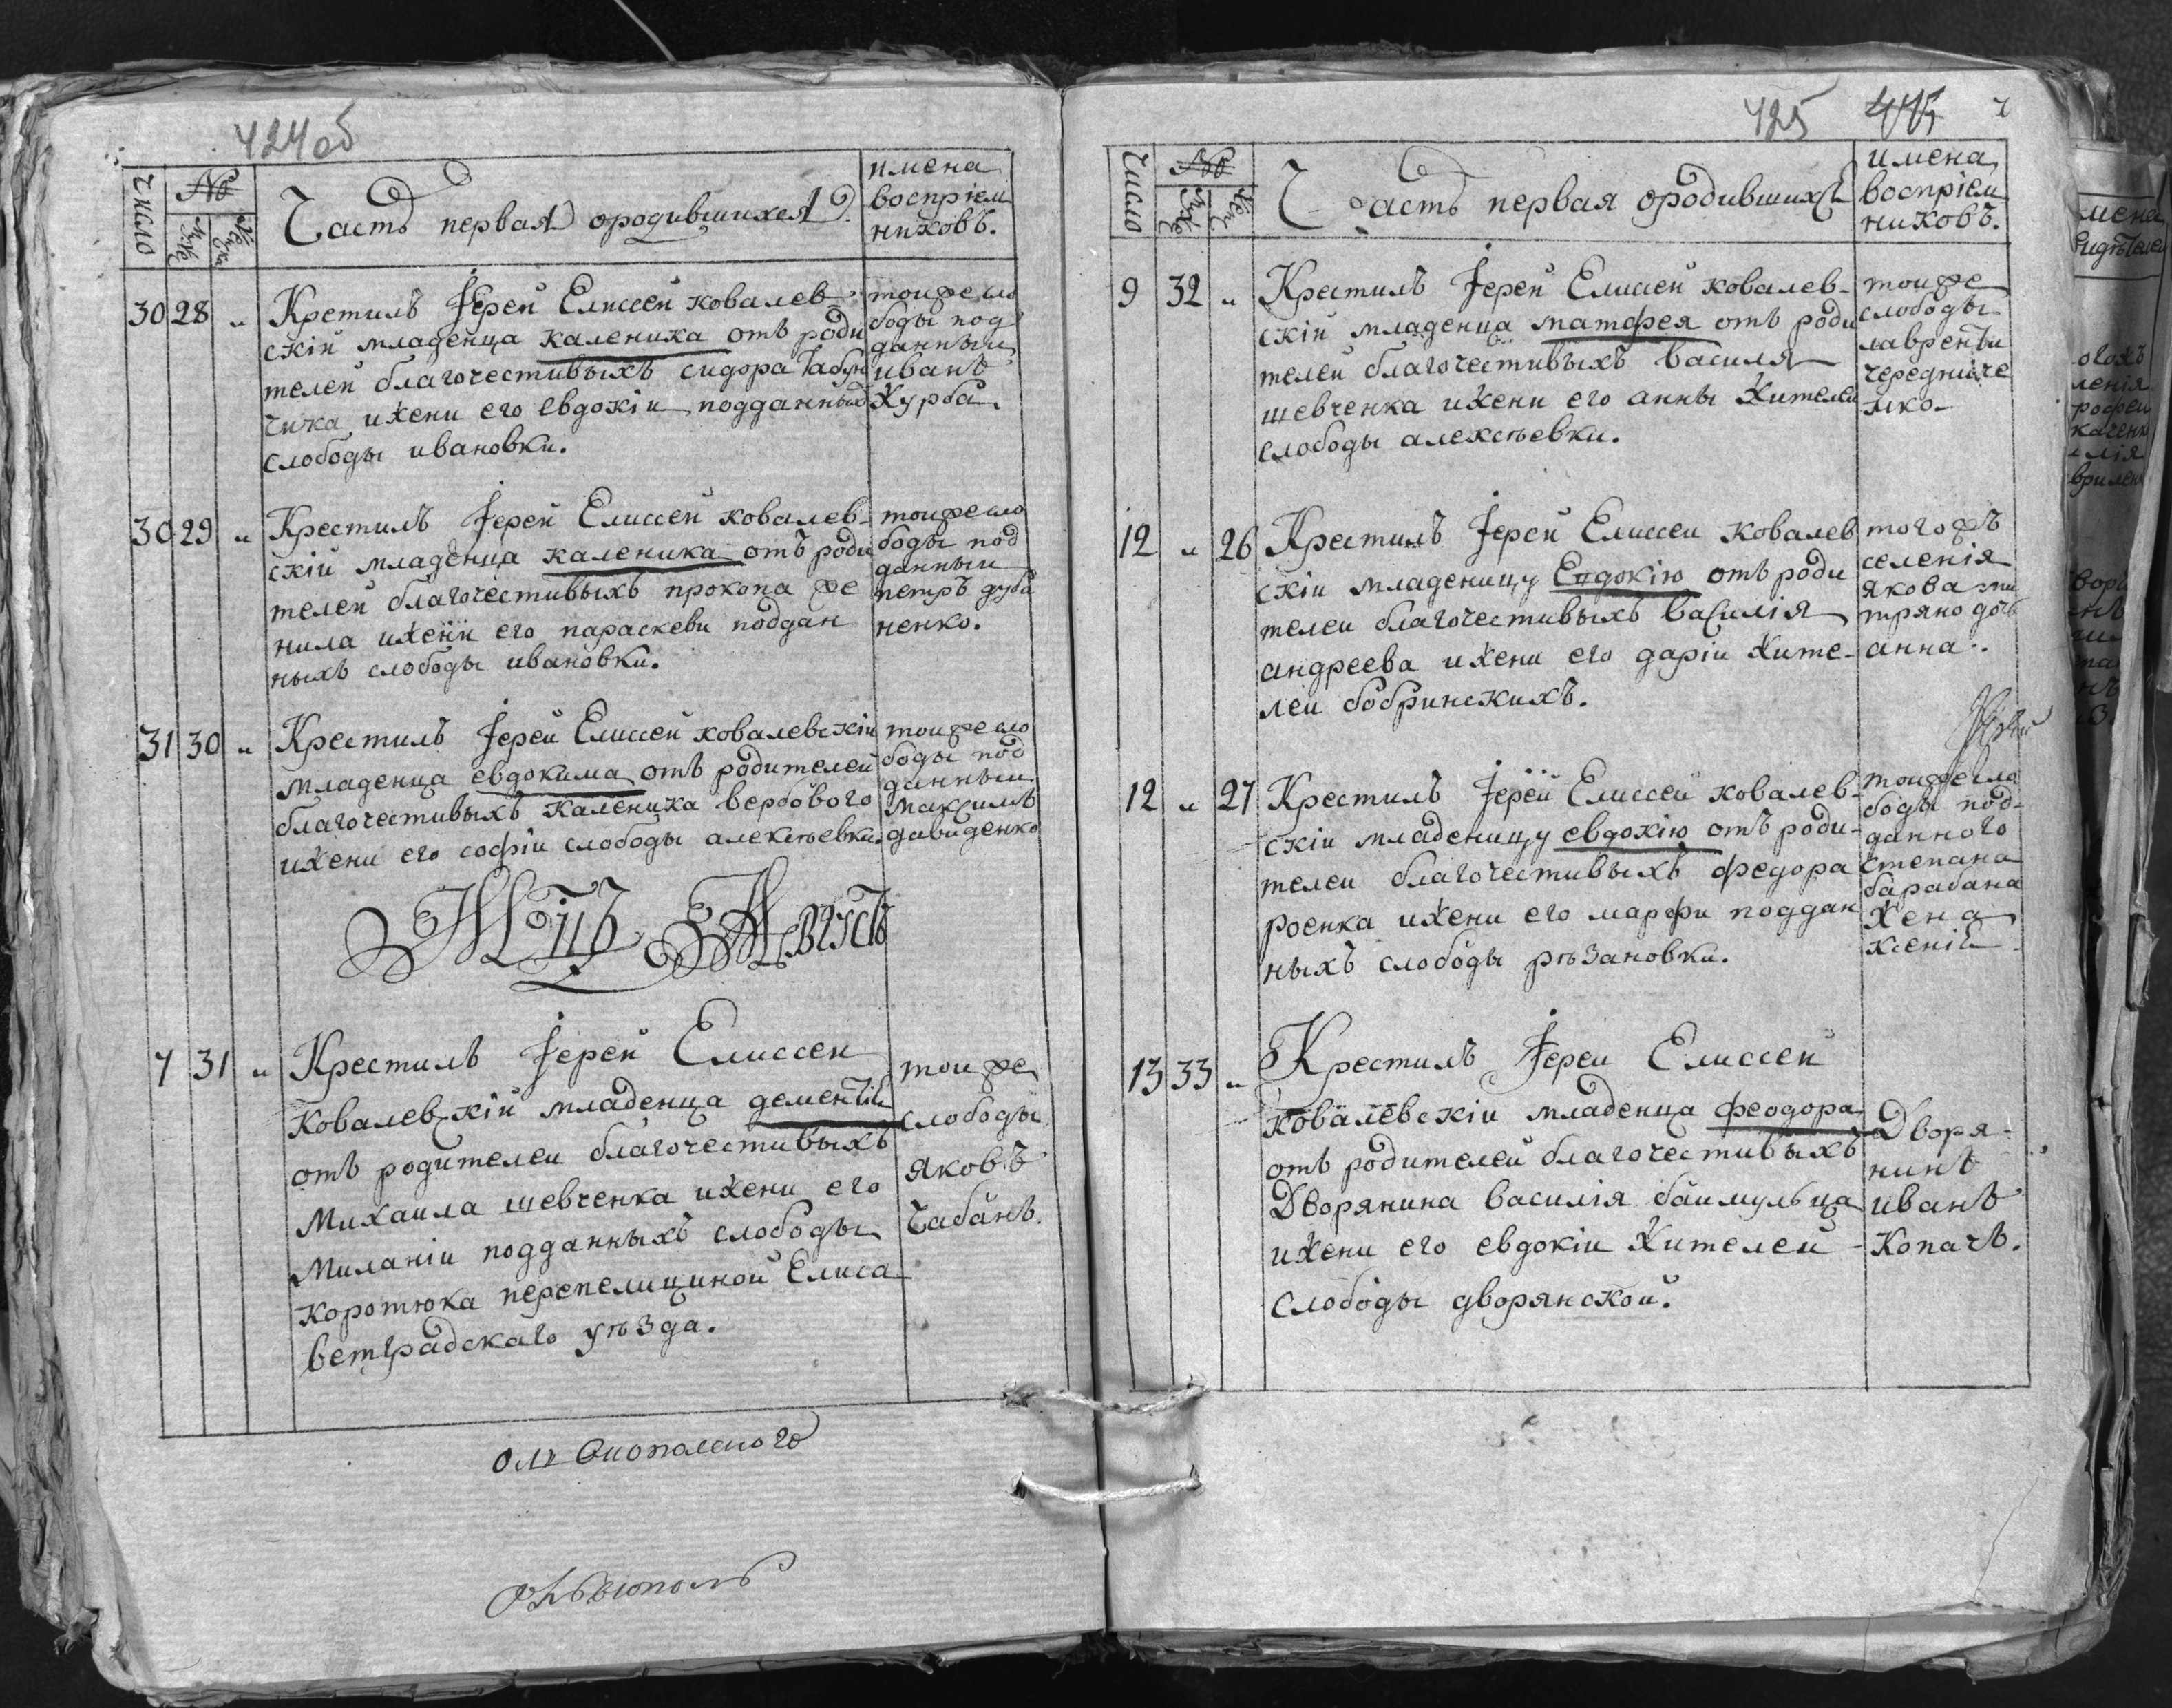 424 об
Число
№
Часть первая ородившихся
имена
воспріем
никовъ.
30 28 "
Кретилъ Іерей Елиссей ковалев
скій младенца каленика отъ роди
телей благочестивыхъ сидора Табун
чика ижени его евдокіи подданныхъ
слободы ивановки.
тоиже сло
боды под
данный
иванъ
Журба.
30 29 "
Крестилъ Іерей Елиссей ковалев-
скій младенца каленика отъ роди
телей благочестивыхъ прокопа же
нила ижени его параскеви поддан
ныхъ слободы ивановки.
тоиже сло
боды под
данный
петръ дуби
ненко.
31 30 "
Крестилъ Іерей Елиссей ковалевскій
младенца евдокима отъ родителей
благочестивыхъ каленика вербового
ижени его софіи слободы алексѣевки.
тоиже сло
боды под
данный
максимъ
давиденко
Мцъ Августъ
7 31 "
Крестилъ Іерей Елиссей
Ковалевскій младенца дементія
отъ родителей благочестивыхъ
Михаила шевченка ижени его
Миланіи подданныхъ слободы
коротюка перепелициной Елиса
ветградскаго уѣзда.
тоиже
слободы
яковъ
Чабанъ.
425
Число
№
Часть первая ородившихся
имена
воспріем
никовъ.
9 32 "
Крестилъ Іерей Елиссей ковалев-
скій младенца матфея отъ роди
телей благочестивыхъ василя
шевченка ижени его анны Жителей
слободы алексѣевки.
тоиже
слободы
лаврентій
чередниче
нко-
12 " 26
Крестилъ Іерей Елиссей ковалев
скій младеницу Евдокію отъ роди
телей благочестивыхъ василія
андреева ижени его даріи Жите-
лей бобринскихъ.
тогожъ
селенія
якова ми
тряно дочь
анна..
12 " 27
Крестилъ Іерей Елиссей ковалев-
скій младеницу евдокію отъ роди-
телей благочестивыхъ федора
роенка ижени его марфи поддан
ныхъ слободы рѣзановки.
тоиже сло
боды под-
данного
степана
барабана
Жена
ксенія
13 33 "
Крестилъ Іерей Елиссей
ковалевскій младенца феодора
отъ родителей благочестивыхъ
Дворянина василія баимульца
ижени его евдокіи Жителей
слободы дворянской.
Дворя-
нинъ
иванъ
Копачъ.